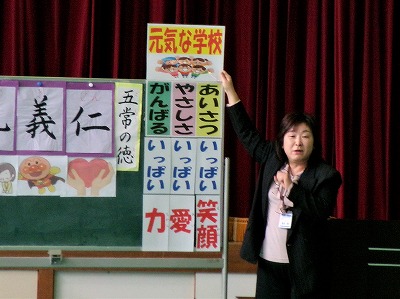 元気な学校
あいさつ
いっぱい
笑顔
やさしさ
いっぱい
愛
がんばる
いっぱい
力
五常の徳
仁
義